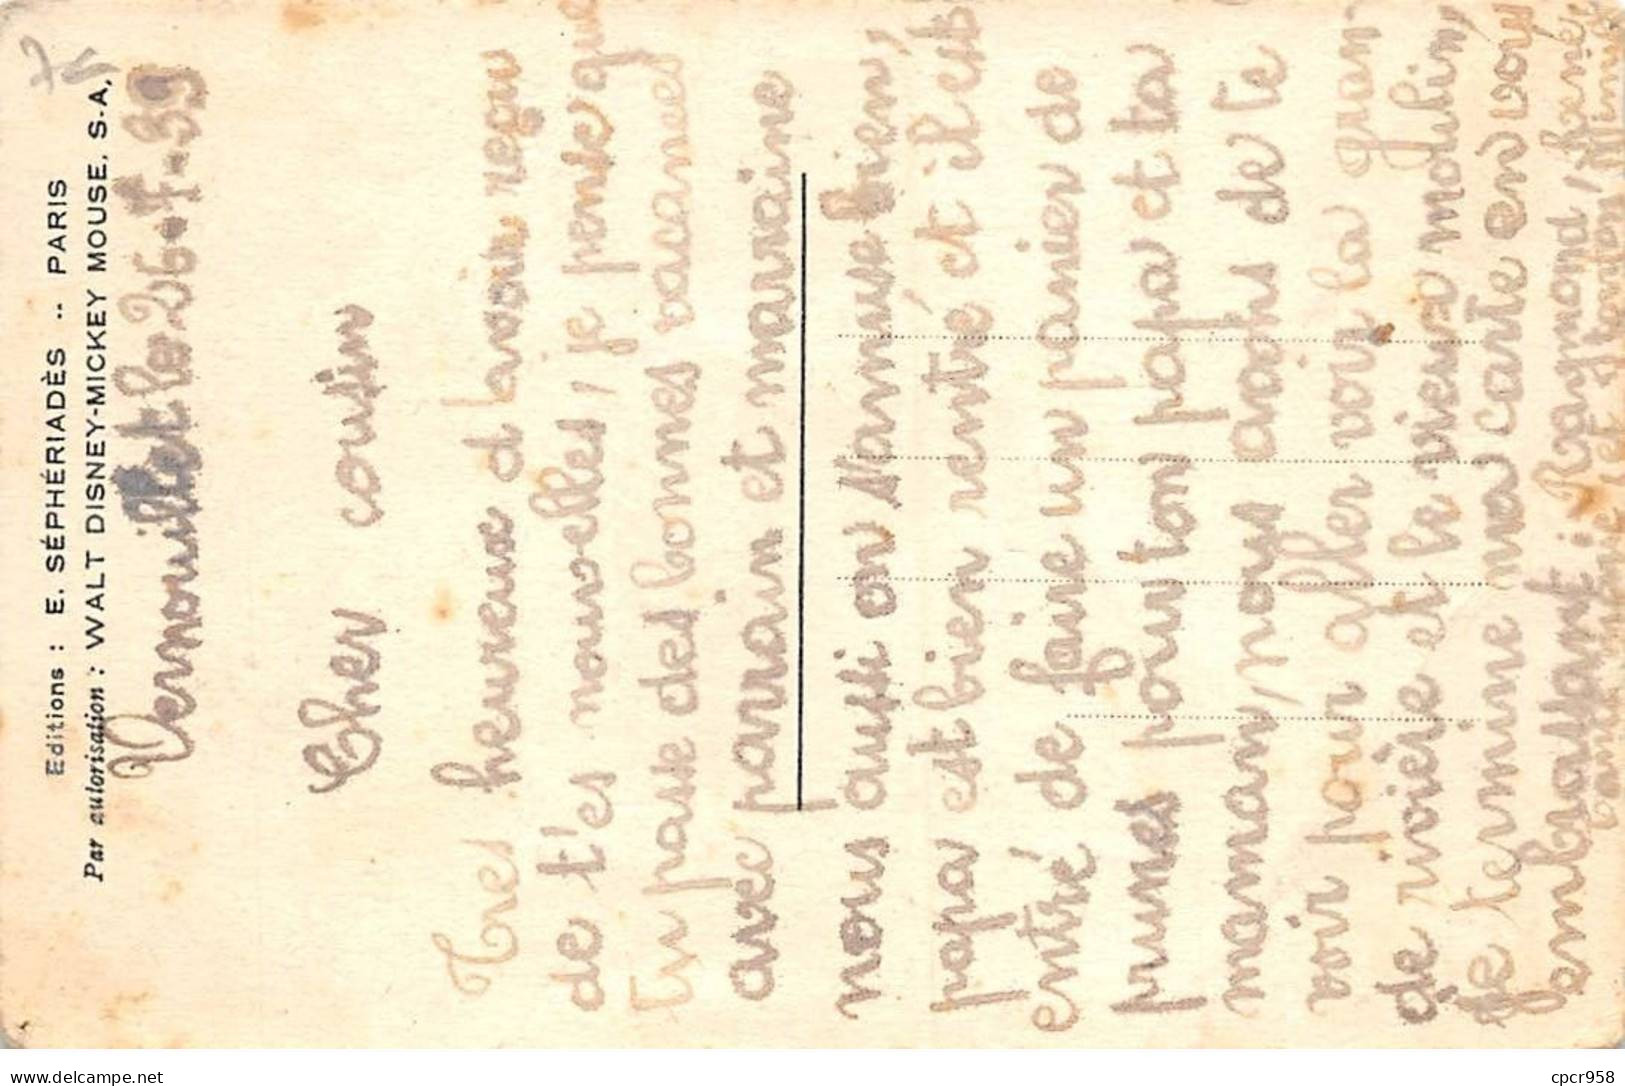 78
Editions : E. SÉPHÉRIADÈS -- PARIS
Par autorisation : WALT DISNEY-MICKEY MOUSE, S.A.
Vernouillet le 26-7-39
Cher cousin
Tres heureux d'avoir reçu
de t'es nouvelles, je pense que
tu passe des bonnes vacances
avec parrain et marraine
nous aussi on s'amuse bien,
papa est bien rentré et il est
entré de faire un panier de
prunes pour ton papa et ta
maman, nous avons de te
voir pour aller voir la gran
de rivière et le vieux moulin,
Je termine ma carte en vous
embrassant : Raymond, René,
et tonton Mimile
delcampe.net
cpcr958